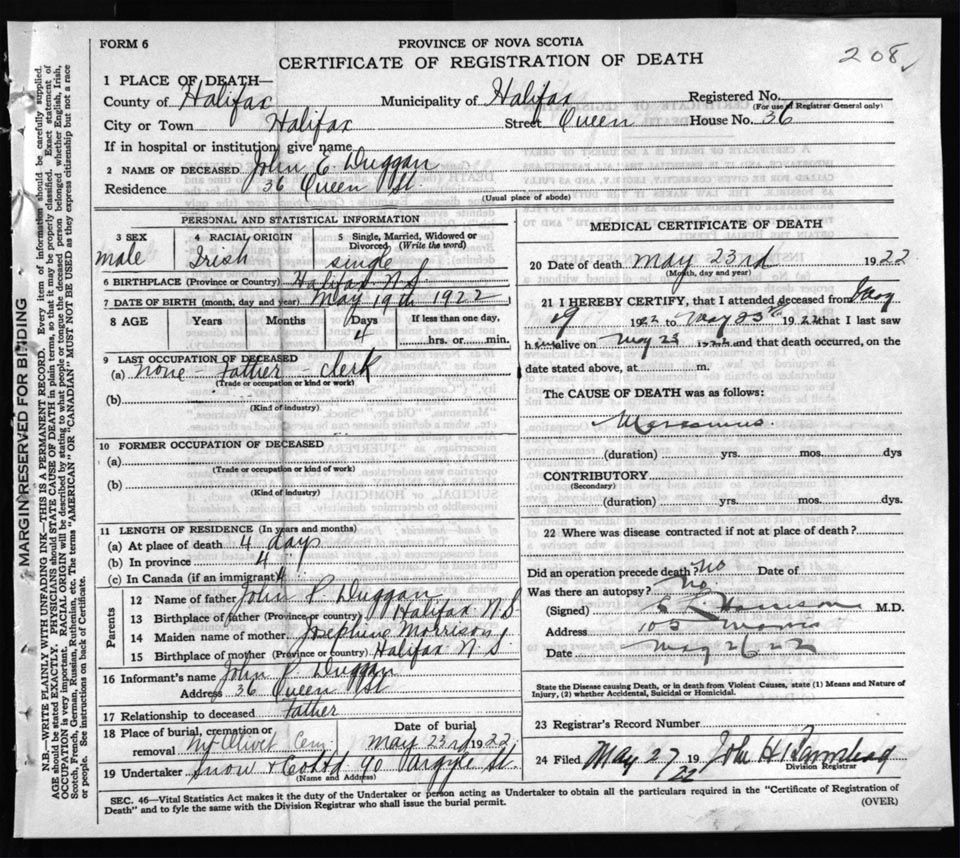 FORM 6
PROVINCE OF NOVA SCOTIA
CERTIFICATE OF REGISTRATION OF DEATH
208
1 PLACE OF DEATH—
County of Halifax Municipality of Halifax Registered No.
(For use of Registrar General only)
City or Town Halifax Street Queen House No. 36
If in hospital or institution, give name
2 NAME OF DECEASED John E. Duggan
Residence 36 Queen St.
(Usual place of abode)
PERSONAL AND STATISTICAL INFORMATION
3 SEX 4 RACIAL ORIGIN 5 Single, Married, Widowed or Divorced (Write the word)
male Irish single
6 BIRTHPLACE (Province or Country) Halifax N.S
7 DATE OF BIRTH (month, day and year) May 19th 1922
8 AGE Years Months Days If less than one day,
4 hrs. or min.
9 LAST OCCUPATION OF DECEASED
(a) none - Father - clerk
(Trade or occupation or kind or work)
(b)
(Kind of industry)
10 FORMER OCCUPATION OF DECEASED
(a)
(Trade or occupation or kind of work)
(b)
(Kind of industry)
11 LENGTH OF RESIDENCE (In years and months)
(a) At place of death 4 days
(b) In province 4
(c) In Canada (if an immigrant) 4
Parents
12 Name of father John P. Duggan
13 Birthplace of father (Province or country) Halifax N.S
14 Maiden name of mother Josephine Morrison
15 Birthplace of mother (Province or country) Halifax N S
16 Informant's name John P. Duggan
Address 36 Queen St
17 Relationship to deceased Father
18 Place of burial, cremation or removal Mt Olivet Cem. Date of burial May 23rd 1922
19 Undertaker Snow & Co Ltd 90 Argyle St
(Name and Address)
MEDICAL CERTIFICATE OF DEATH
20 Date of death May 23rd 1922
(Month, day and year)
21 I HEREBY CERTIFY, that I attended deceased from May
19 1922 to May 23rd 1922 that I last saw
h alive on May 23 1922 and that death occurred, on the
date stated above, at m.
The CAUSE OF DEATH was as follows:
Marasmus
(duration) yrs. mos. dys
CONTRIBUTORY
(Secondary)
(duration) yrs. mos. dys.
22 Where was disease contracted if not at place of death?
Did an operation precede death? No Date of
Was there an autopsy? No.
(Signed) M.D.
Address Morris
Date May 26 22
State the Disease causing Death, or in death from Violent Causes, state (1) Means and Nature of
Injury, (2) whether Accidental, Suicidal or Homicidal.
23 Registrar's Record Number
24 Filed May 27 19 22 John H
Division Registrar
SEC. 46—Vital Statistics Act makes it the duty of the Undertaker or person acting as Undertaker to obtain all the particulars required in the "Certificate of Registration of
Death" and to fyle the same with the Division Registrar who shall issue the burial permit.
(OVER)
MARGIN RESERVED FOR BINDING
N.B.—WRITE PLAINLY WITH UNFADING INK—THIS IS A PERMANENT RECORD. Every item of information should be carefully supplied.
AGE should be stated EXACTLY. PHYSICIANS should STATE CAUSE OF DEATH in plain terms, so that it may be properly classified. Exact statement of
OCCUPATION is very important. RACIAL ORIGIN will be described by stating to what people or tongue the deceased person belonged whether English, Irish,
Scotch, French, German, Russian, Ruthenian, etc. The terms "AMERICAN" OR "CANADIAN" MUST NOT BE USED as they express citizenship but not a race
or people. See instructions on back of Certificate.